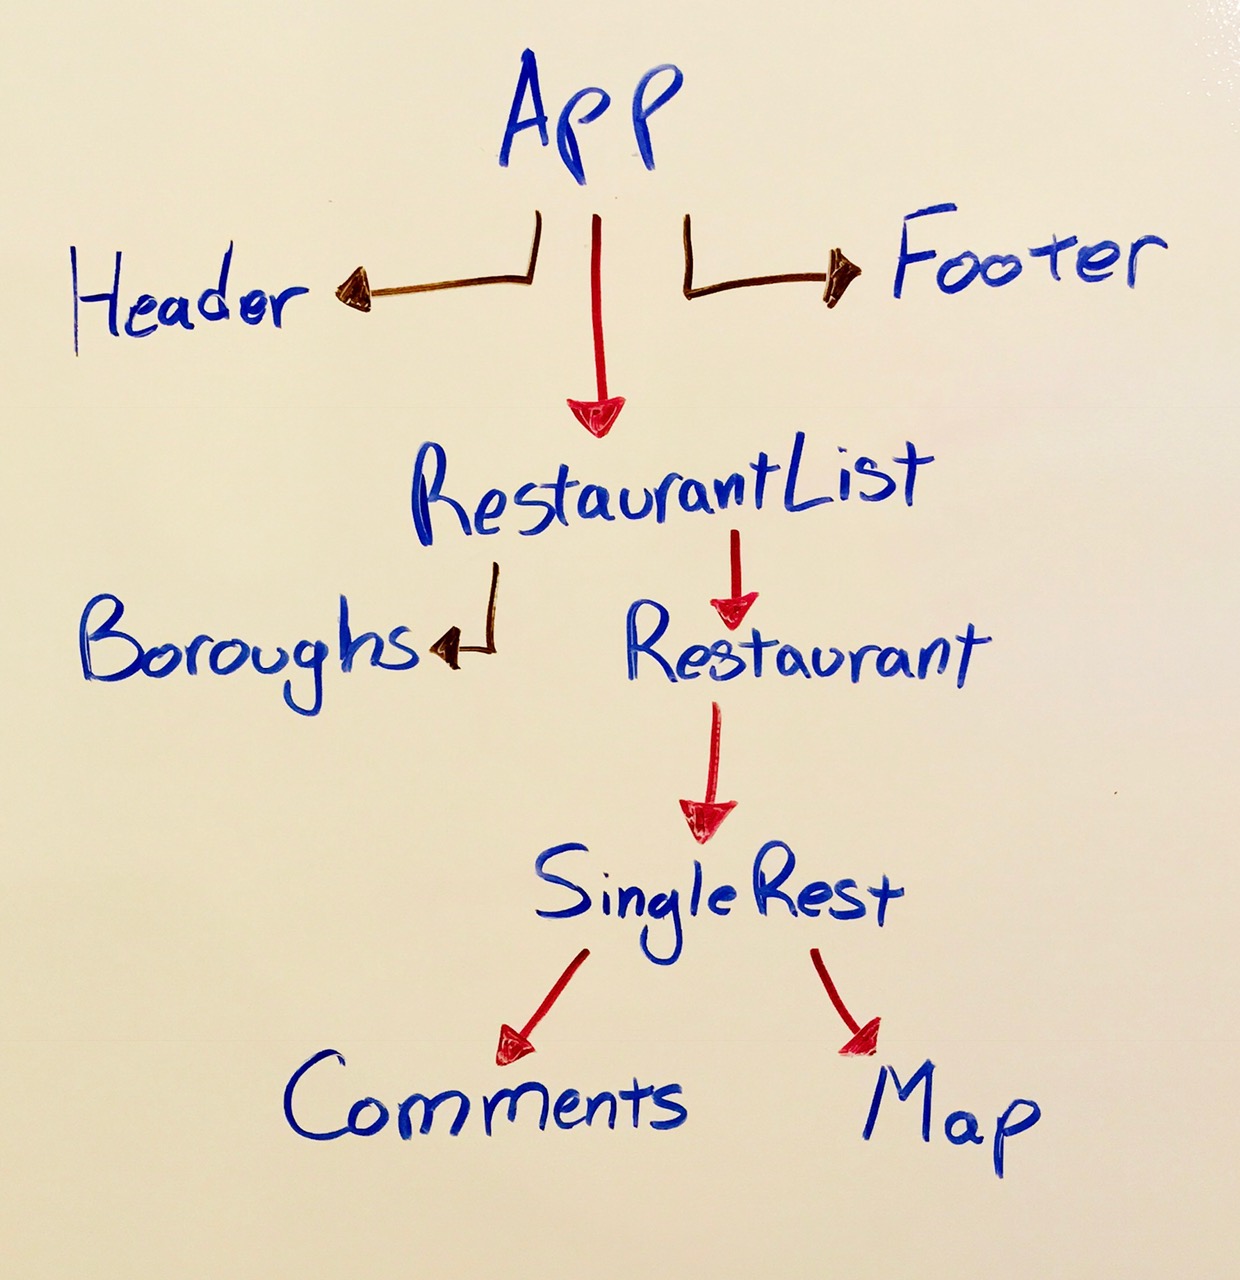 App
Header
Footer
RestaurantList
Boroughs
Restaurant
SingleRest
Comments
Map